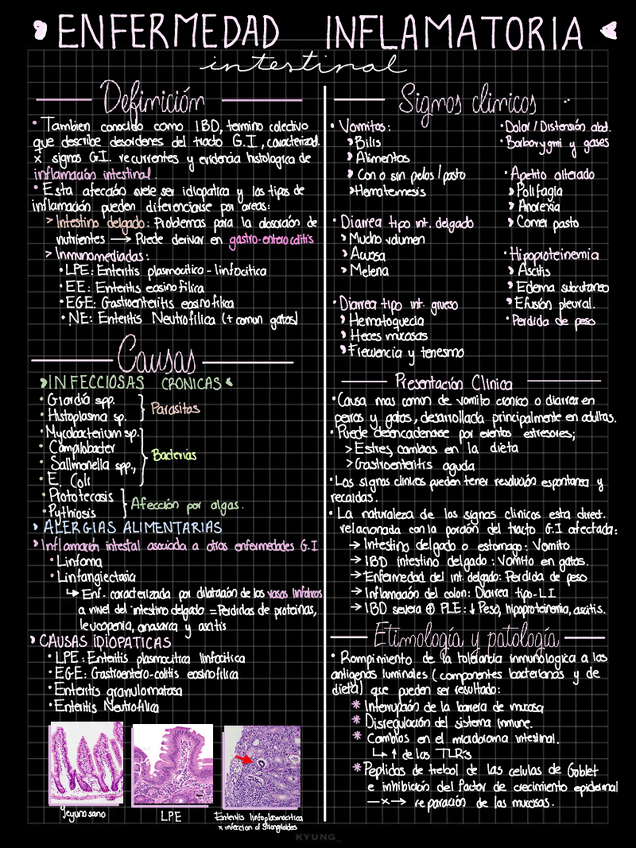 ENFERMEDAD INFLAMATORIA
intestinal
Definición
• Tambien conocido como IBD, termino colectivo
que describe desordenes del tracto G.I, caracterizad.
x signos G.I. recurrentes y evidencia histologica de
inflamación intestinal.
• Esta afección suele ser idiopatica y los tipos de
inflamación pueden diferenciarse por áreas:
> Intestino delgado: Problemas para la absorción de
nutrientes → Puede derivar en gastro-enterocolitis
> Inmunomediadas:
• LPE: Enteritis plasmocitico-linfocitica
• EE: Enteritis eosinofilica
• EGE: Gastroenteritis eosinofilica
• NE: Enteritis Neutrofilica (+ comun gatos)
Causas
INFECCIOSAS CRONICAS
• Giardia spp.
• Histoplasma sp.
Parasitos
• Mycobacterium sp.
• Campilobacter
• Sallmonella spp.,
• E. Coli
Bacterias
• Prototecosis
• Pythiosis
Afección por algas.
› ALERGIAS ALIMENTARIAS
› Inflamación intestal asociada a otras enfermedades G.I
• Linfoma
• Linfangiectaria
↳ Enf. caracterizada por dilatación de los vasos linfaticos
a nivel del intestino delgado = Perdidas de proteinas,
leucopenia, anasarca y ascitis
› CAUSAS IDIOPATICAS
• LPE: Enteritis plasmocitica linfocitica
• EGE: Gastroentero-colitis eosinofilica
• Enteritis granulomatosa
• Enteritis Neutrofilica
Yeyuno sano
LPE
Enteritis linfoplasmocitica
x infeccion d Strongiloides
Signos clinicos
• Vomitos:
› Bilis
› Alimentos
› Con o sin pelos/pasto
› Hematemesis
• Diarrea tipo int. delgado
› Mucho volumen
› Acuosa
› Melena
• Diarrea tipo int. grueso
› Hematoquecia
› Heces mucosas
› Frecuencia y tenesmo
• Dolor/Distensión abd.
• Borborygmi y gases
• Apetito alterado
› Polifagia
› Anorexia
› Comer pasto
• Hipoproteinemia
› Ascitis
› Edema subcutaneo
› Efusión pleural.
• Perdida de peso
Presentación Clinica
• Causa mas comun de vomito cronico o diarrea en
perros y gatos, desarrollada principalmente en adultas.
• Puede desencadenarse por eventos estresores;
> Estres, cambios en la dieta
> Gastroenteritis aguda
• Los signos clinicos pueden tener resolución espontanea y
recaidas.
• La naturaleza de los signos clinicos esta direct.
relacionada con la porción del tracto G.I afectada:
→ Intestino delgado o estomago: Vomito
→ IBD intestino delgado: Vomito en gatos.
→ Enfermedad del int. delgado: Perdida de peso
→ Inflamación del colon: Diarrea tipo-L.I
→ IBD severa ⊕ PLE: ↓ Peso, hipoproteinemia, ascitis.
Etimología y patología
• Rompimiento de la tolerancia inmunologica a los
antigenos luminales (componentes bacterianos y de
dieta) que pueden ser resultado:
* Interrupción de la barrera de mucosa
* Disregulación del sistema inmune.
* Cambios en el microbioma intestinal.
↳ ↑ de los TLR's
* Peptidos de trebol de las celulas de Goblet
e inhibición del factor de crecimiento epidermal
—x→ reparación de las mucosas.
KYUNG_